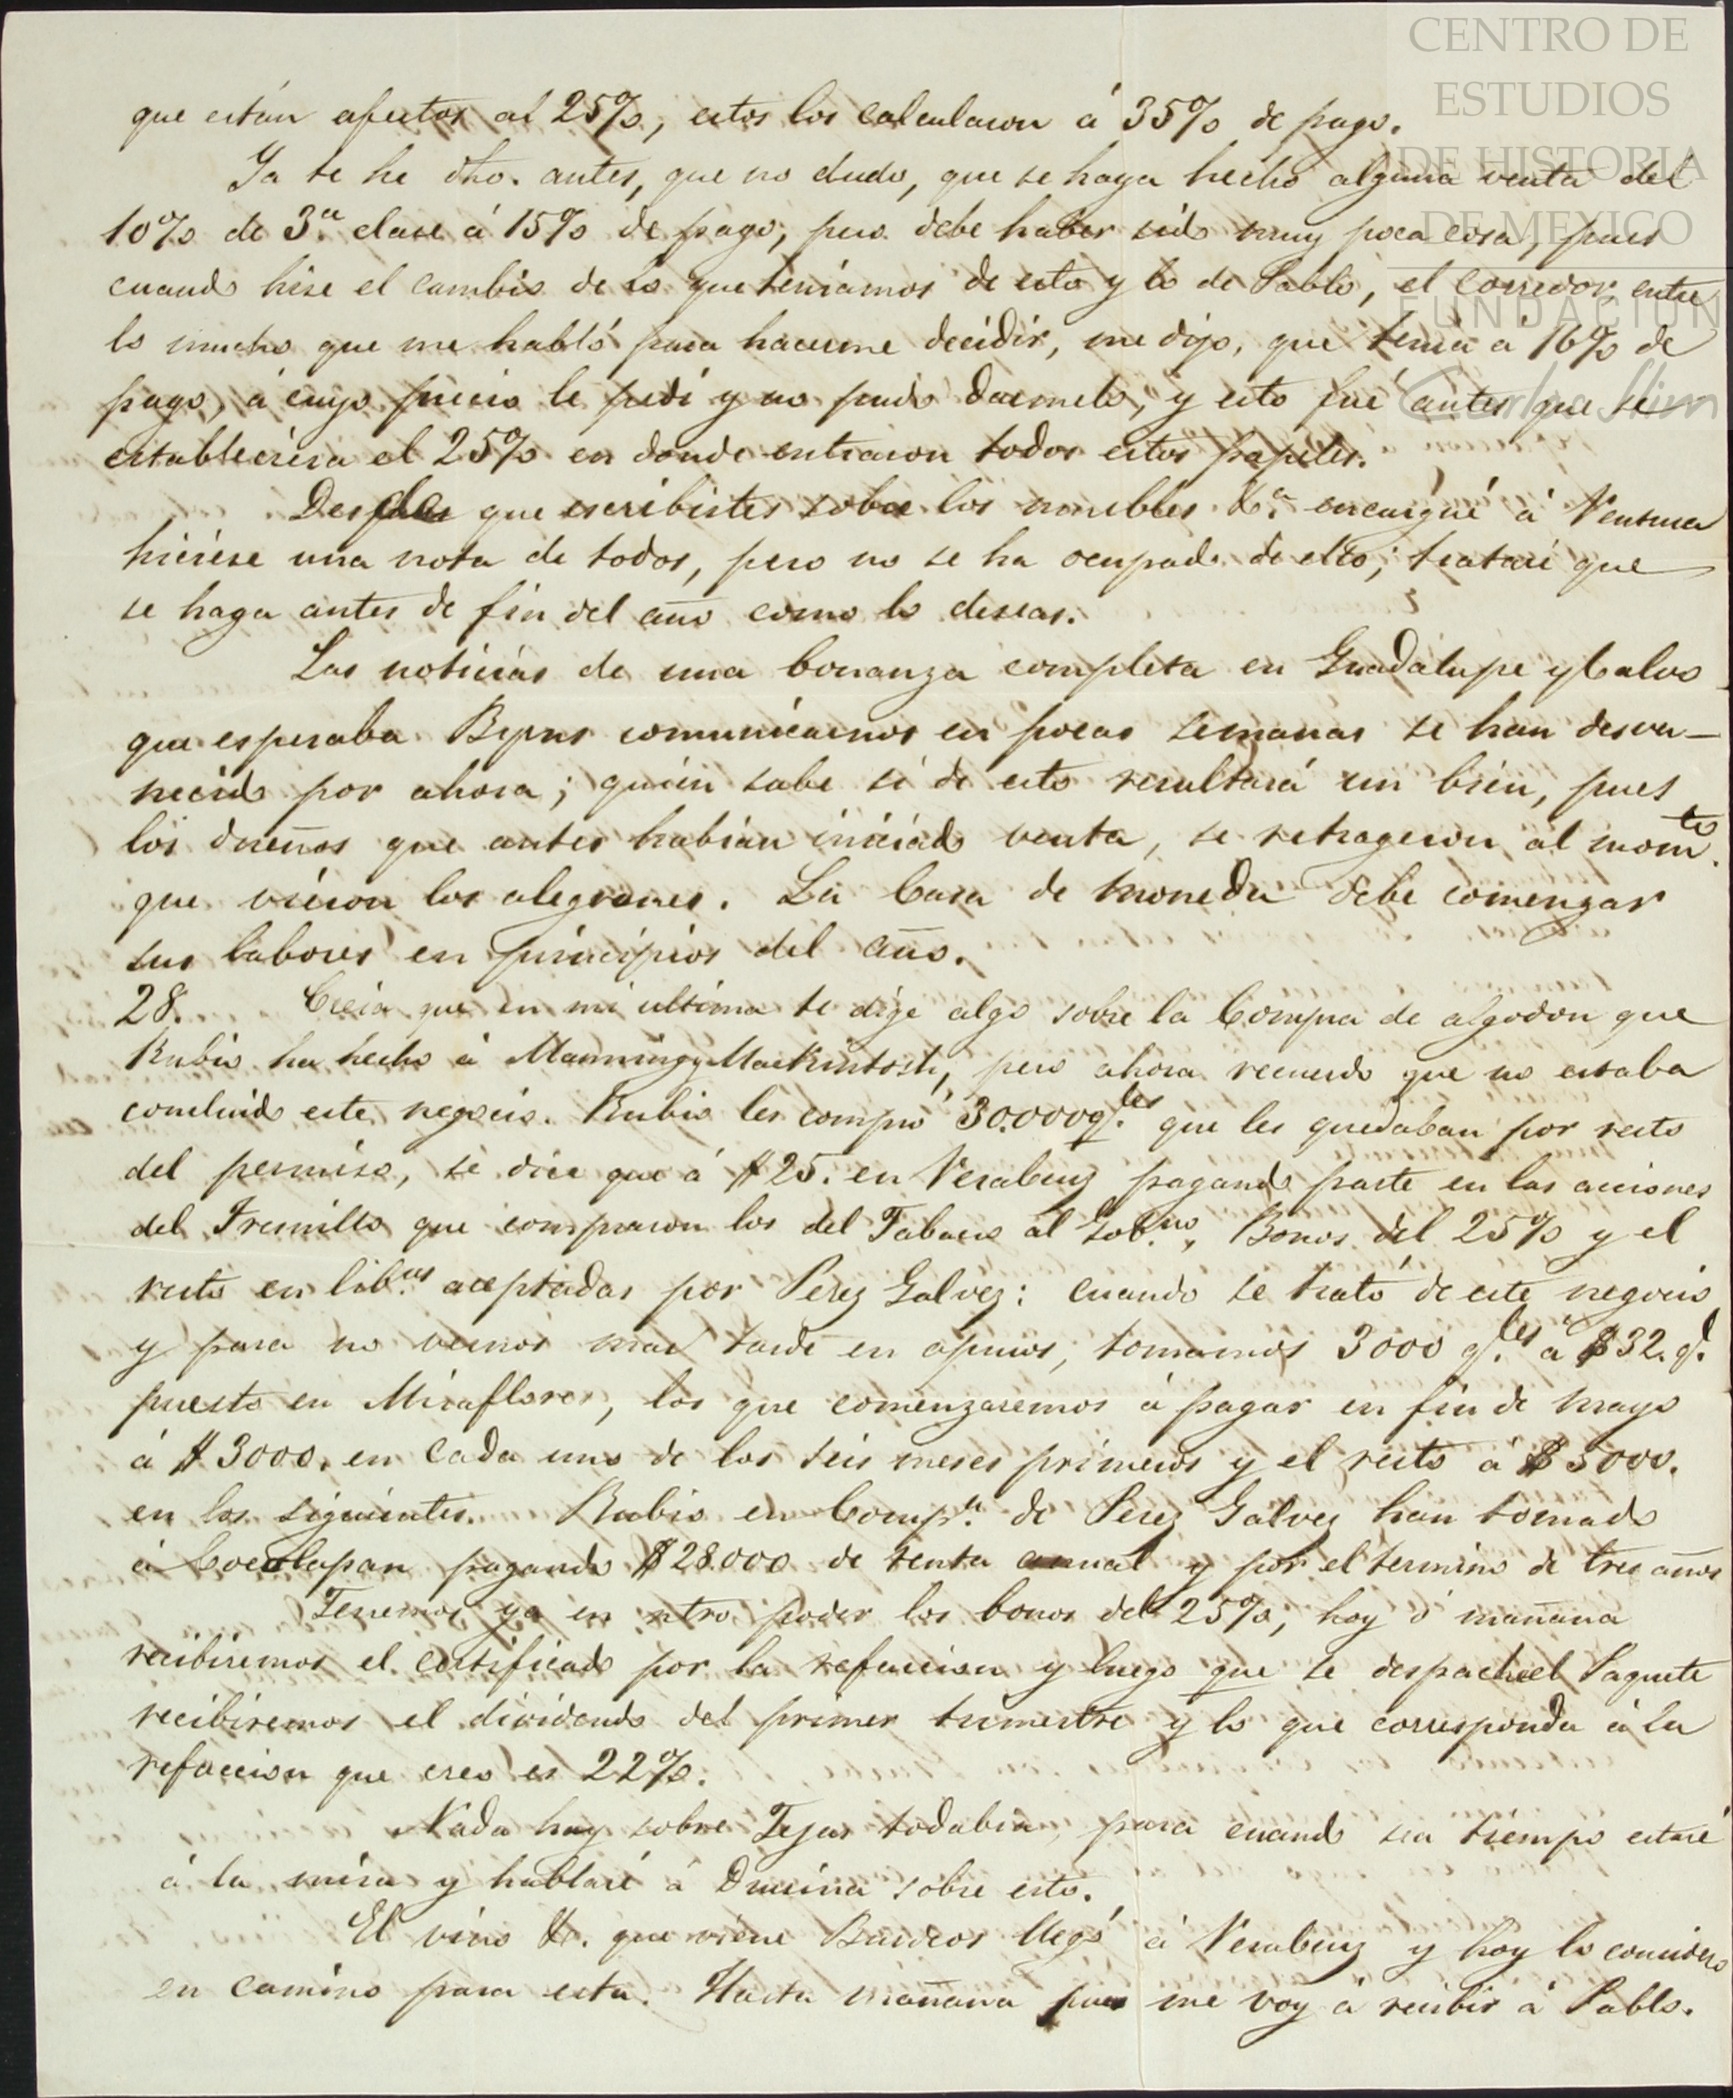 CENTRO DE
ESTUDIOS
DE HISTORIA
DE MEXICO
FUNDACION
Carlos Slim
que están afectos al 25%, estos los calcularon á 35% de pago.
Ya te he dho. antes, que no dudo, que se haya hecho alguna venta del
10% de 3.a clase á 15% de pago, pero debe haber sido muy poca cosa, pues
cuando hise el cambio de lo que teniamos de esto y lo de Pablo, el corredor entre
lo mucho que me habló para hacerme decidir, me dijo, que tenia á 16% de
pago, á cuyo precio le pedí y no pudo darmelo, y esto fué antes que se
estableciera el 25% en donde entraron todos estos papeles.
Desde que escribistes sobre los muebles &.a encargué á Ventura
hiciese una nota de todos, pero no se ha ocupado de ello; trataré que
se haga antes de fin del año como lo deseas.
Las noticias de una bonanza completa en Guadalupe y Calvo
que esperaba Byrns comunicarnos en pocas semanas se han desva-
necido por ahora; quien sabe si de esto resultará un bien, pues
los dueños que antes habian iniciado venta, se retrageron al mom.to
que vieron los alegrones. La Casa de moneda debe comenzar
sus labores en principios del año.
28. Creia que en mi ultima te dige algo sobre la Compra de algodon que
Rubio ha hecho á Manning y MacKintosh, pero ahora recuerdo que no estaba
concluido este negocio. Rubio les compró 30.000 q.les que les quedaban por resto
del permiso, se dice que á $25. en Veracruz pagando parte en las acciones
del Fresnillo que compraron los del Tabaco al Gob.no, Bonos del 25% y el
resto en lib.zas aceptadas por Perez Galvez: cuando se trató de este negocio
y para no vernos mas tarde en apuros, tomamos 3000 q.les á $32. q.l
puesto en Miraflores, los que comenzaremos á pagar en fin de mayo
á $3000. en cada uno de los seis meses primeros y el resto á $5000.
en los siguientes. Rubio en Comp.a de Perez Galvez han tomado
á Cocolapan pagando $28.000 de renta anual y por el termino de tres años
Tenemos ya en ntro poder los bonos del 25%, hoy ó mañana
recibiremos el certificado por la refaccion y luego que se despache el Paquete
recibiremos el dividendo del primer trimestre y lo que corresponda á la
refaccion que creo es 22%.
Nada hay sobre Tejas todabia, para cuando sea tiempo estaré
á la mira y hablaré á Drusina sobre esto.
El vino &. que viene Burdeos llegó á Veracruz y hoy lo considero
en camino para esta. Hasta mañana pues me voy á recibir á Pablo.